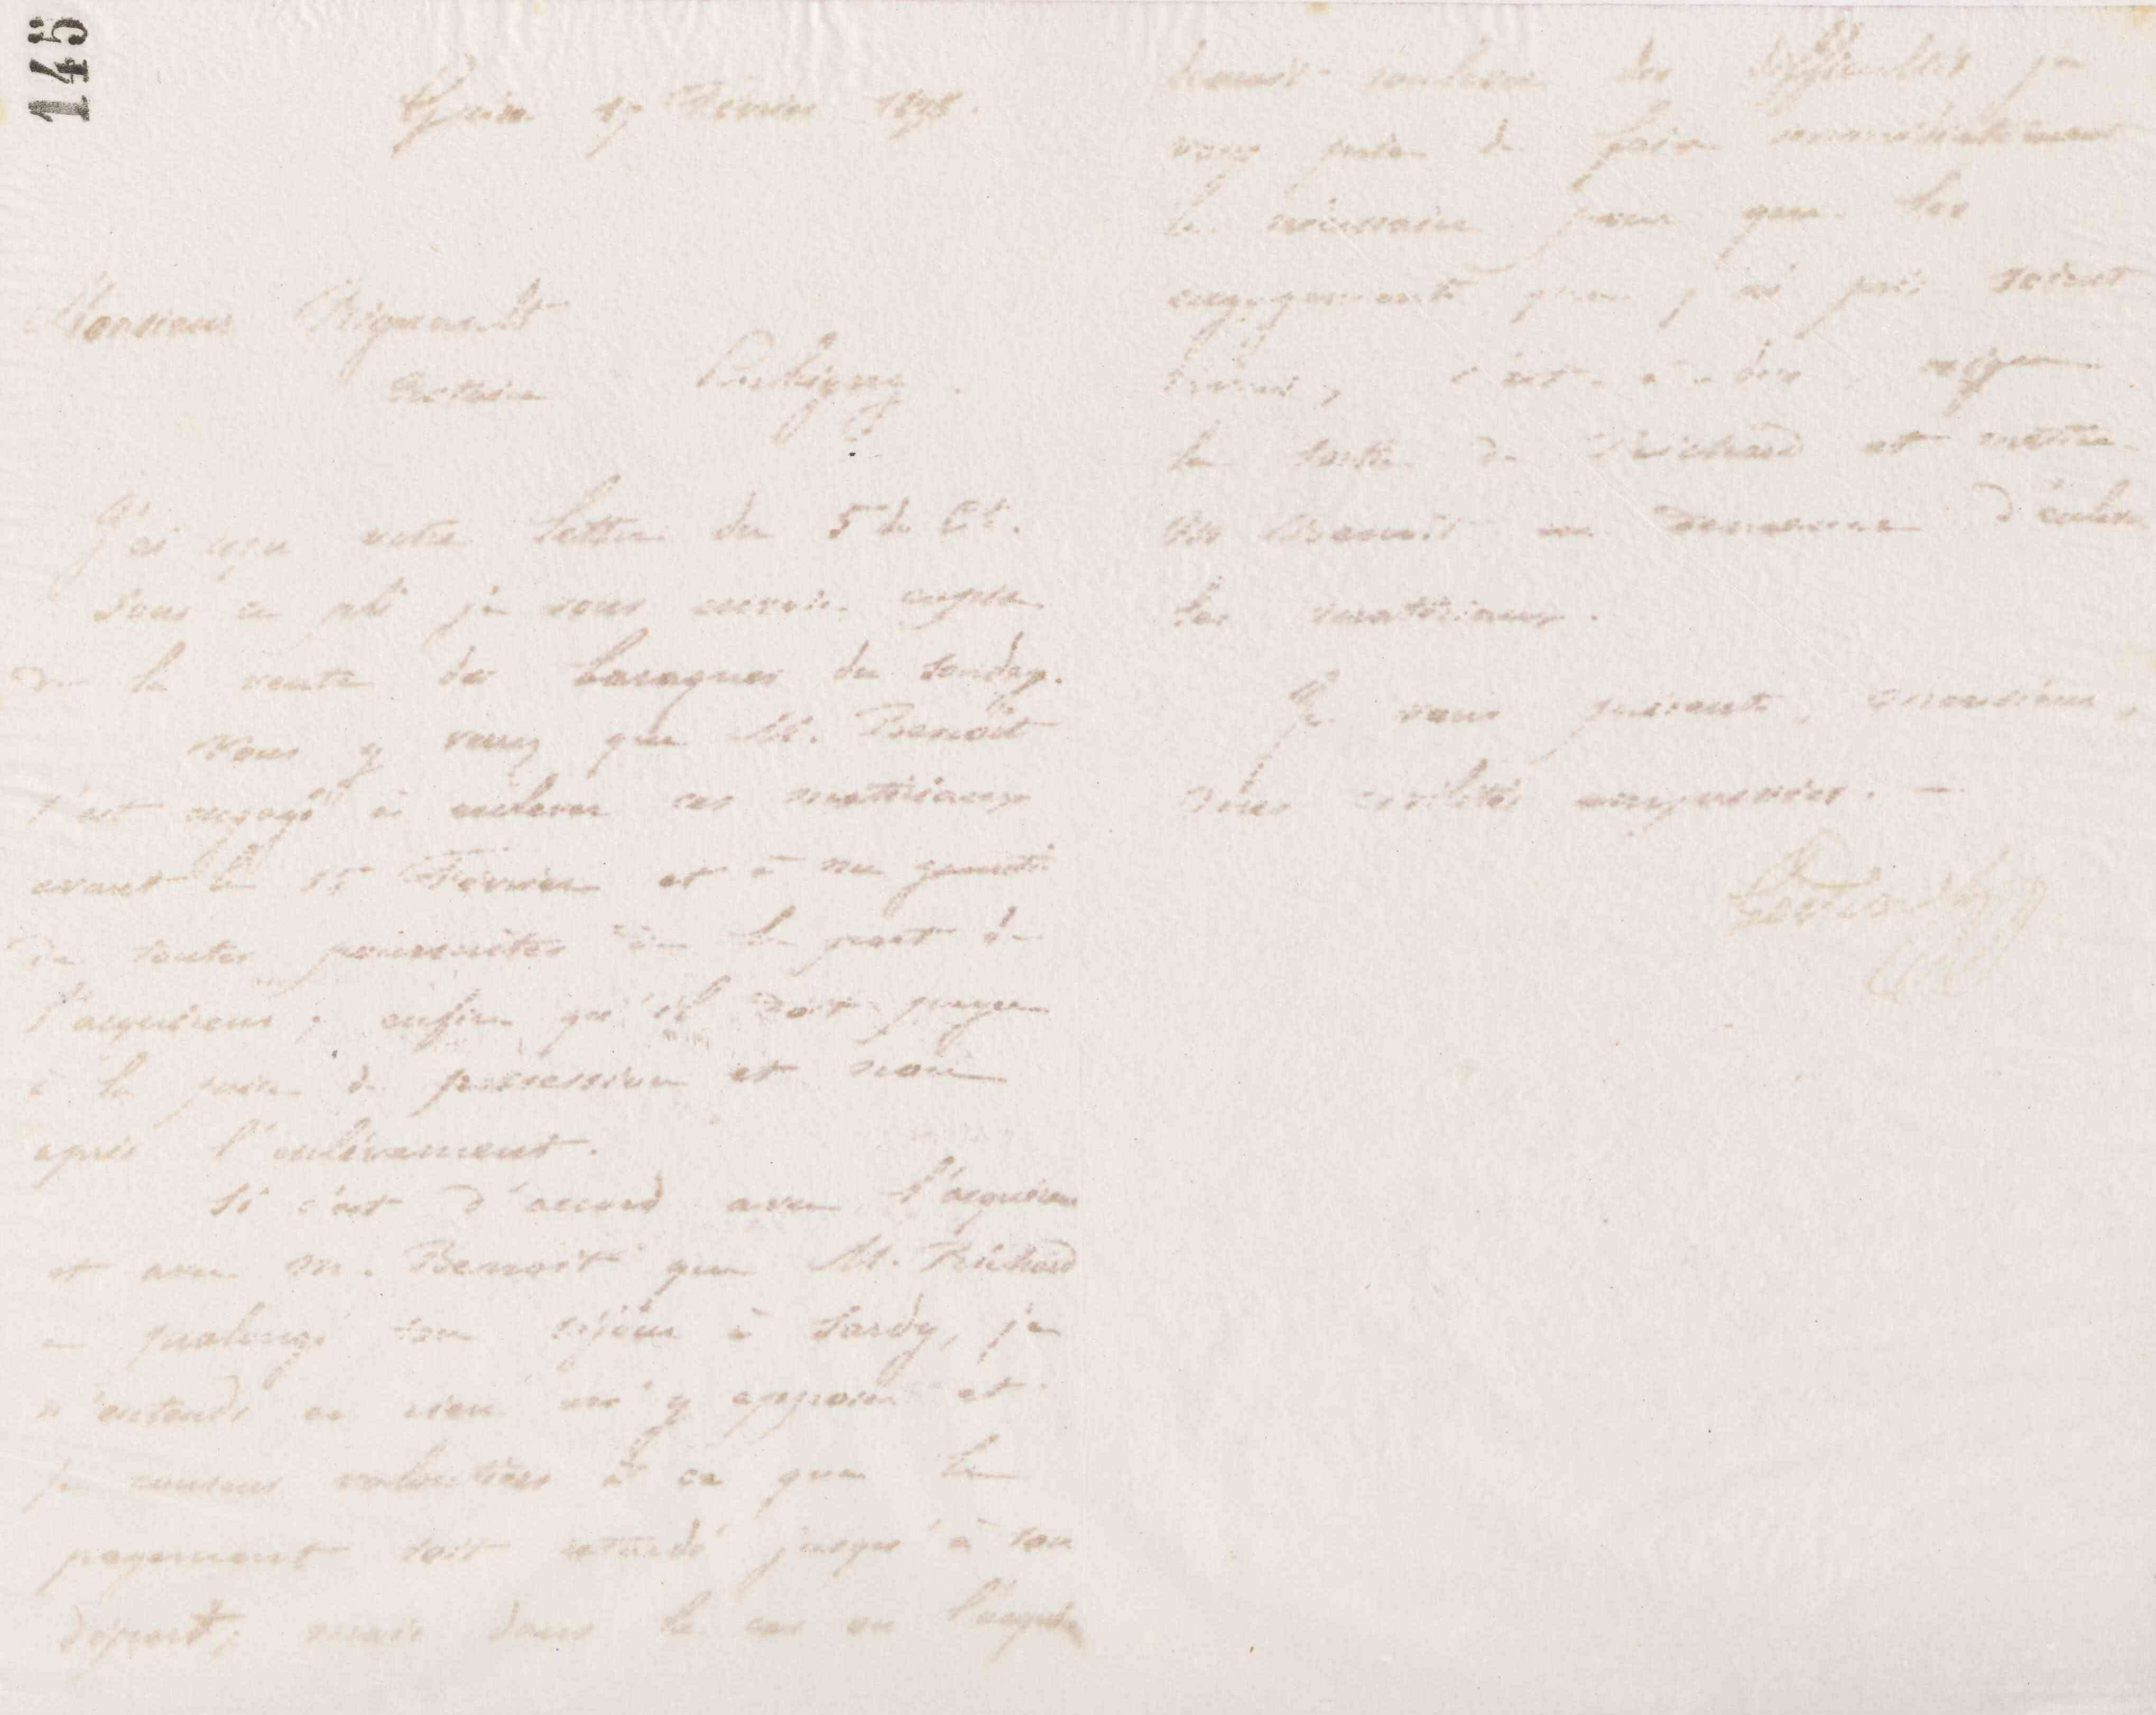 145
Guise 17 Février 1898.
Monsieur
Notaire
J'ai reçu votre lettre du 5 de Ct.
Sous ce pli je vous envoie copie
de la vente des baraques du sondage.
Vous y verrez que M. Benoît
s'est engagé à enlever ces matériaux
avant le 15 Février et à me garantir
de toutes poursuites de la part de
l'acquéreur ; enfin qu'il doit payer
à la prise de possession et non
après l'enlèvement.
Si c'est d'accord avec l'acquéreur
et avec M. Benoît que M. Richard
a prolongé son séjour à Sardy, je
n'entends en rien m'y opposer et
je consens volontiers à ce que le
payement soit retardé jusqu'à son
départ; mais dans le cas où l'acqué-
soulever des difficultés je
vous prie de faire immédiatement
le nécessaire pour que les
engagements que j'ai pris soient
tenus, c'est-à-dire exiger
la sortie de Richard et mettre
Mr Benoît en demeure d'enlever
les matériaux.
Je vous présente, Monsieur,
mes civilités empressées.